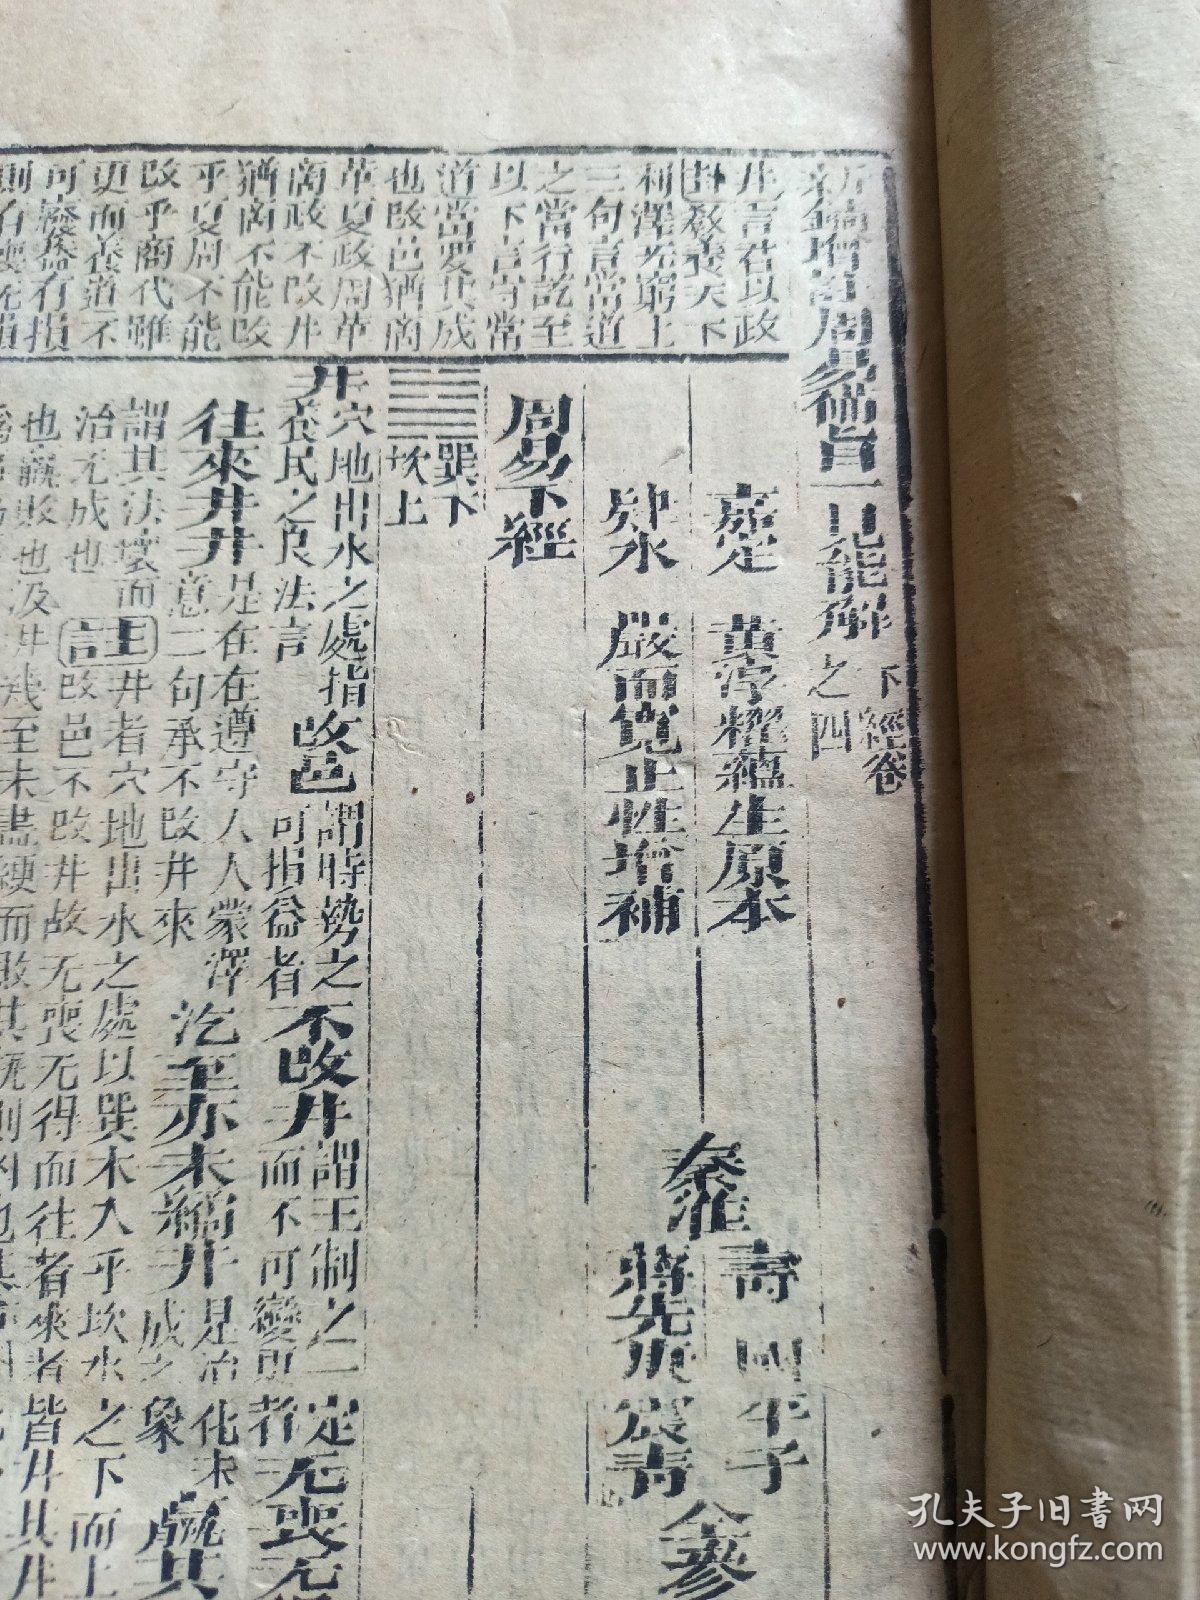 新鐫增訂周易備旨一見能解 下經卷之四
嘉定 黃淳耀蘊生原本
肄水 嚴而寬止性增補
秦淮 壽 國平子
蔣先庚震青
仝參
周易下經
巽下
坎上
井言君以政
卦教養天下
利澤无窮上
三句言當道
之當行訖至
以下言守常
道當要其成
也改邑猶商
革夏政周革
商政不改井
猶商不能改
乎夏周不能
改乎商代雖
更而養道不
可廢葢有損
則有喪无損
井穴地出水之處指養民之良法言改邑謂時勢之可損益者不改井謂王制之一定而不可變更者无喪无
往來井井是在在遵守人人蒙澤意二句承不改井來汔至亦未繘井是治化未成之象羸其
謂其決壞而治无成也
主井者穴地出水之處以巽木入乎坎水之下而上
言改邑不改井故无喪无得而往者來者皆井其井
也羸敗也及井幾至未盡綆而敗其瓶則凶也
孔夫子旧书网
www.kongfz.com